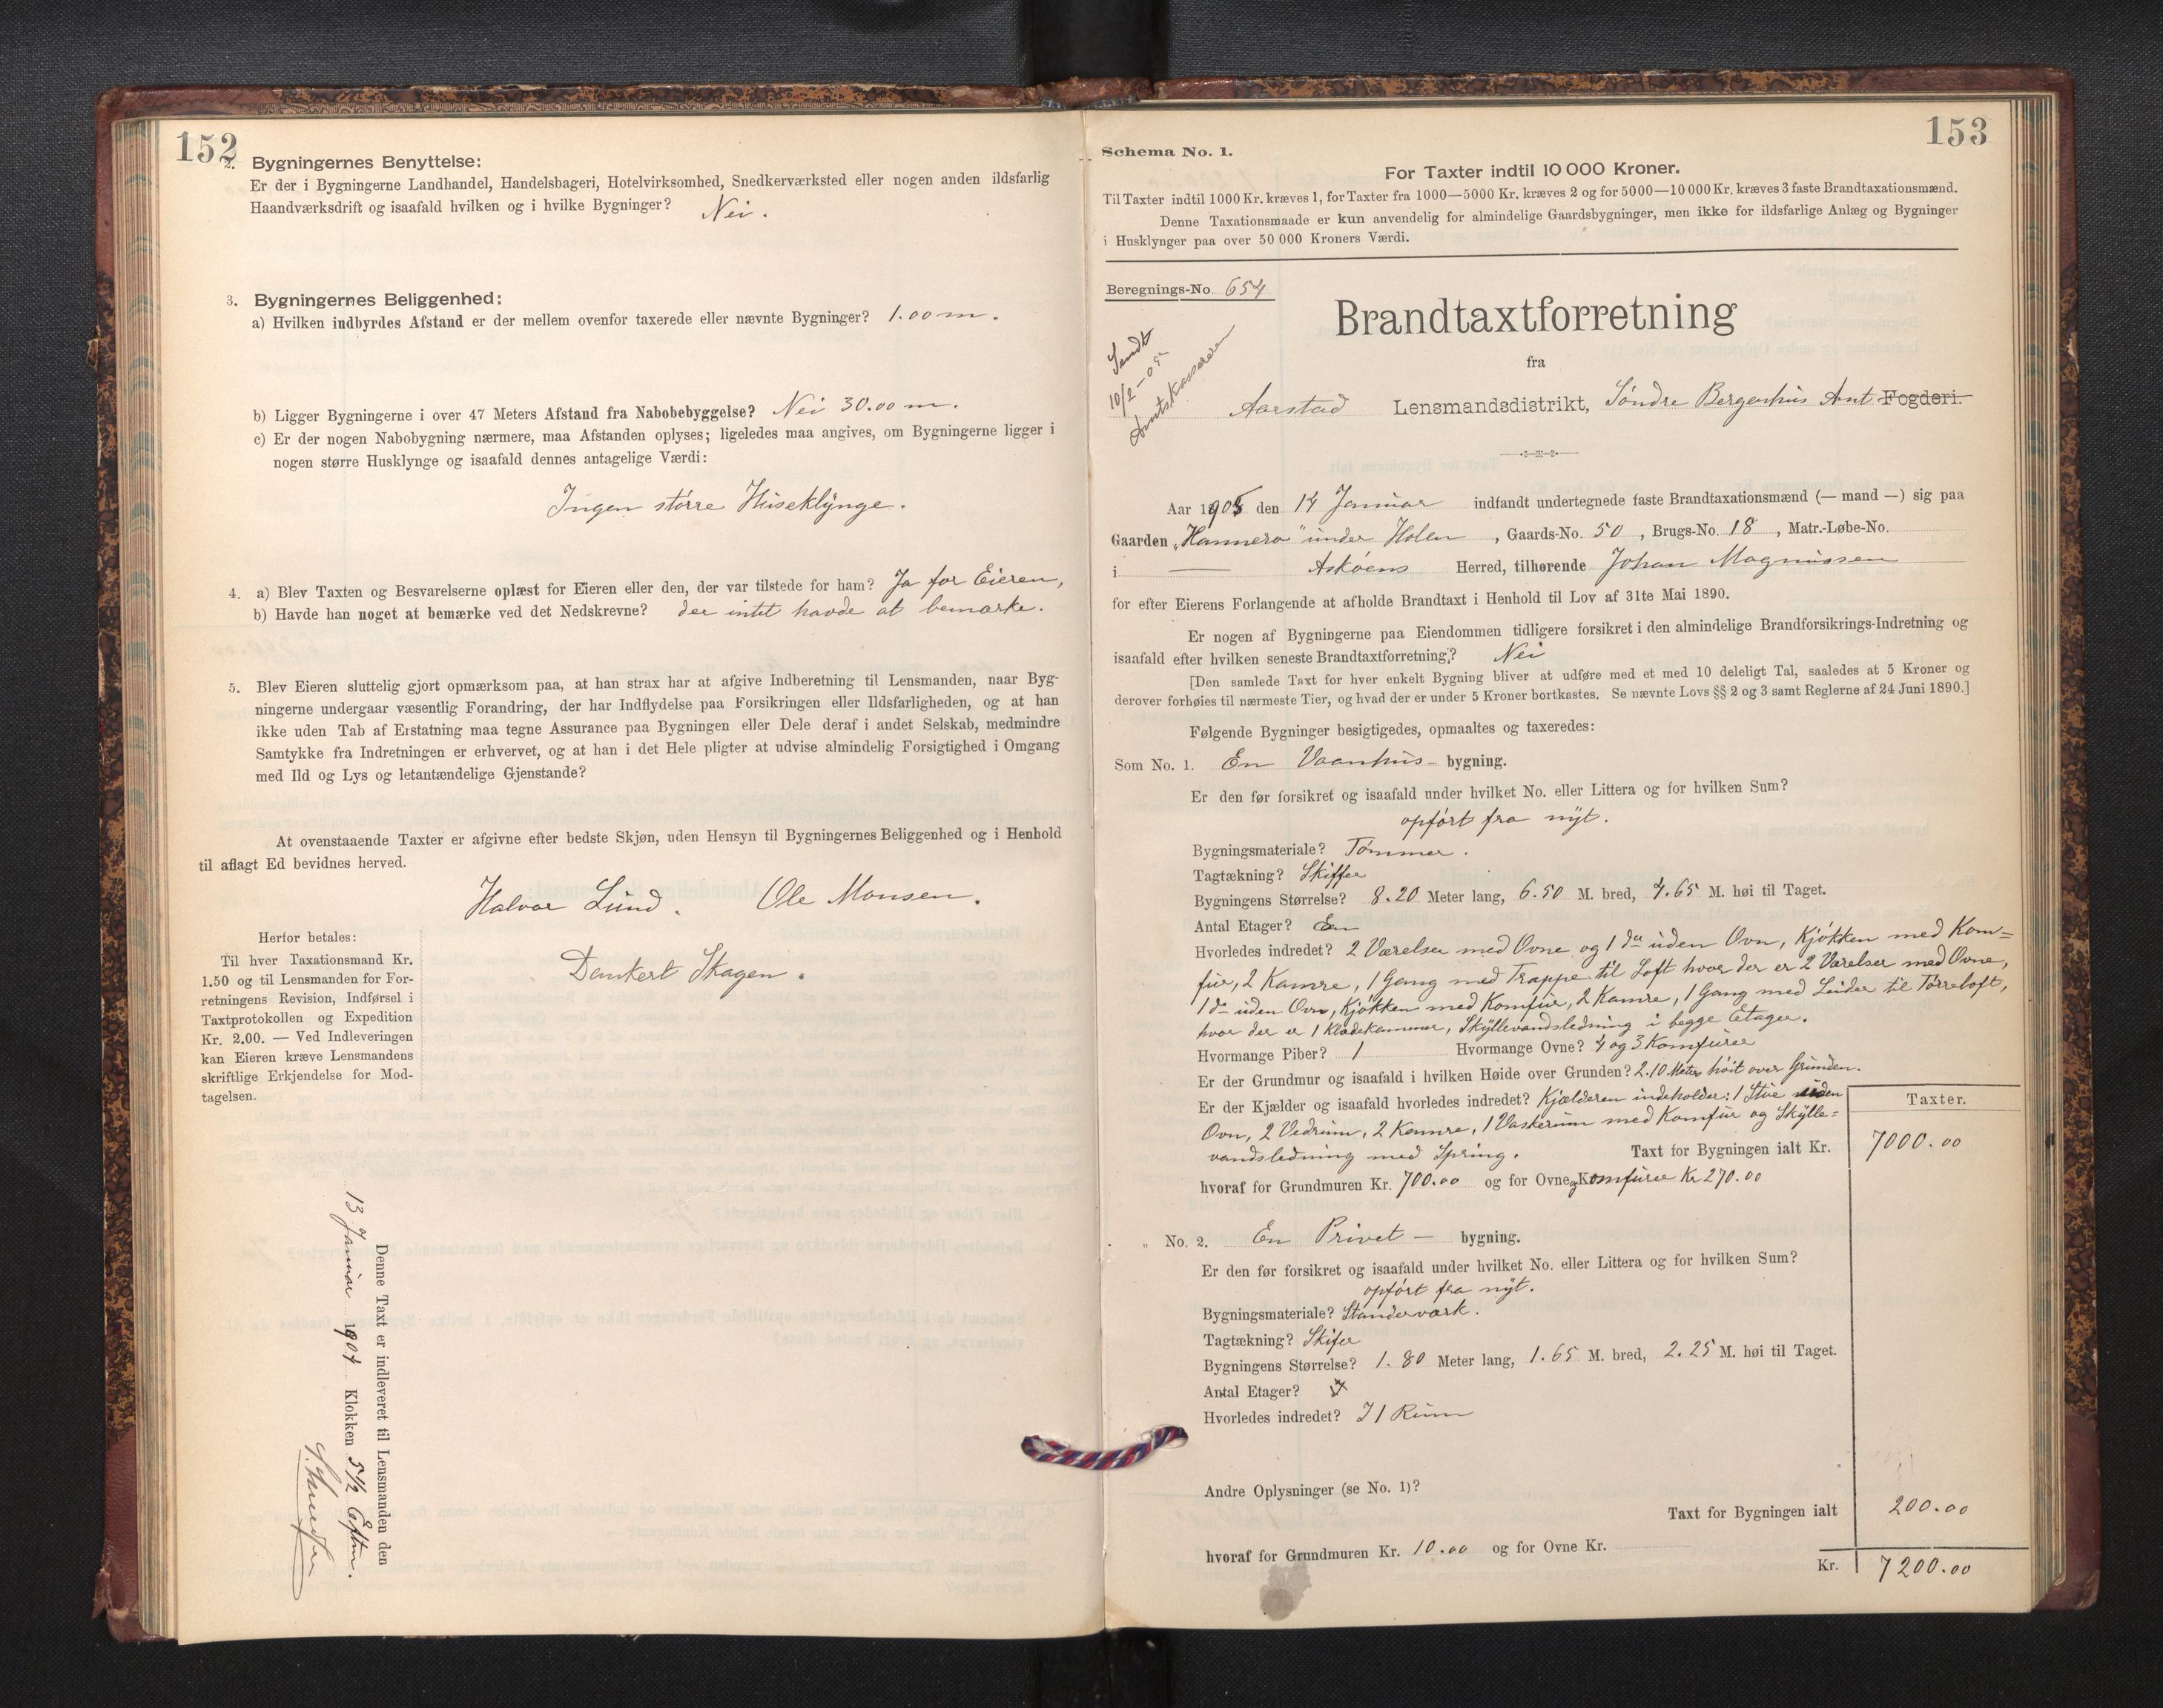 152
2. Bygningernes Benyttelse:
Er der i Bygningerne Landhandel, Handelsbageri, Hotelvirksomhed, Snedkerværksted eller nogen anden ildsfarlig
Haandværksdrift og isaafald hvilken og i hvilke Bygninger? Nei.
3. Bygningernes Beliggenhed:
a) Hvilken indbyrdes Afstand er der mellem ovenfor taxerede eller nævnte Bygninger? 1.00 m.
b) Ligger Bygningerne i over 47 Meters Afstand fra Nabobebyggelse? Nei 30.00 m.
c) Er der nogen Nabobygning nærmere, maa Afstanden oplyses; ligeledes maa angives, om Bygningerne ligger i
nogen større Husklynge og isaafald dennes antagelige Værdi:
Ingen större Huseklynge.
4. a) Blev Taxten og Besvarelserne oplæst for Eieren eller den, der var tilstede for ham? Ja for Eieren,
b) Havde han noget at bemærke ved det Nedskrevne? der intet havde at bemærke.
5. Blev Eieren sluttelig gjort opmærksom paa, at han strax har at afgive Indberetning til Lensmanden, naar Byg-
ningerne undergaar væsentlig Forandring, der har Indflydelse paa Forsikringen eller Ildsfarligheden, og at han
ikke uden Tab af Erstatning maa tegne Assurance paa Bygningen eller Dele deraf i andet Selskab, medmindre
Samtykke fra Indretningen er erhvervet, og at han i det Hele pligter at udvise almindelig Forsigtighed i Omgang
med Ild og Lys og letantændelige Gjenstande?
At ovenstaaende Taxter er afgivne efter bedste Skjøn, uden Hensyn til Bygningernes Beliggenhed og i Henhold
til aflagt Ed bevidnes herved.
Halvor Lund. Ole Monsen.
Dankert Skagen.
Herfor betales:
Til hver Taxationsmand Kr.
1.50 og til Lensmanden for For-
retningens Revision, Indførsel i
Taxtprotokollen og Expedition
Kr. 2.00. — Ved Indleveringen
kan Eieren kræve Lensmandens
skriftlige Erkjendelse for Mod-
tagelsen.
Denne Taxt er indleveret til Lensmanden den
13 Januar 1904 Klokken 5 1/2 Eftm.
153
Schema No. 1.
For Taxter indtil 10 000 Kroner.
Til Taxter indtil 1000 Kr. kræves 1, for Taxter fra 1000—5000 Kr. kræves 2 og for 5000—10 000 Kr. kræves 3 faste Brandtaxationsmænd.
Denne Taxationsmaade er kun anvendelig for almindelige Gaardsbygninger, men ikke for ildsfarlige Anlæg og Bygninger
i Husklynger paa over 50 000 Kroners Værdi.
Beregnings-No. 654
Sendt
10/2-05
Amtskassereren
Brandtaxtforretning
fra
Aarstad Lensmandsdistrikt, Söndre Bergenhus Amt Fogderi.
Aar 1905 den 14 Januar indfandt undertegnede faste Brandtaxationsmænd (— mand —) sig paa
Gaarden „Hammera" under Holen, Gaards-No. 50, Brugs-No. 18, Matr.-Løbe-No.
i — Asköens Herred, tilhørende Johan Magnussen
for efter Eierens Forlangende at afholde Brandtaxt i Henhold til Lov af 31te Mai 1890.
Er nogen af Bygningerne paa Eiendommen tidligere forsikret i den almindelige Brandforsikrings-Indretning og
isaafald efter hvilken seneste Brandtaxtforretning? Nei
[Den samlede Taxt for hver enkelt Bygning bliver at udføre med et med 10 deleligt Tal, saaledes at 5 Kroner og
derover forhøies til nærmeste Tier, og hvad der er under 5 Kroner bortkastes. Se nævnte Lovs §§ 2 og 3 samt Reglerne af 24 Juni 1890.]
Følgende Bygninger besigtigedes, opmaaltes og taxeredes:
Som No. 1. En Vaanhus- bygning.
Er den før forsikret og isaafald under hvilket No. eller Littera og for hvilken Sum?
opfört fra nyt.
Bygningsmateriale? Tömmer.
Tagtækning? Skiffer
Bygningens Størrelse? 8.20 Meter lang, 6.50 M. bred, 4.65 M. høi til Taget.
Antal Etager? En
Hvorledes indredet? 2 Værelser med Ovne og 1 do uden Ovn, Kjökken med Kom=
für, 2 Kamre, 1 Gang med Trappe til Loft hvor der er 2 Værelser med Ovne,
1 do uden Ovn, Kjökken med Komfür, 2 Kamre, 1 Gang med Leider til Törreloft,
hvor der er 1 Klædekammer, Skyllevandsledning i begge Etager.
Hvormange Piber? 1 Hvormange Ovne? 4 og 3 Komfürer
Er der Grundmur og isaafald i hvilken Høide over Grunden? 2.10 Meter höit over Grunden.
Er der Kjælder og isaafald hvorledes indredet? Kjælderen indeholder: 1 Stue uden
Ovn, 2 Vedrum, 2 Kamre, 1 Vaskerum med Komfür og Skylle=
vandsledning med Spring. Taxt for Bygningen ialt Kr.
Taxter.
7000.00
hvoraf for Grundmuren Kr. 700.00 og for Ovne og Komfürer Kr 270.00
„ No. 2. En Privet — bygning.
Er den før forsikret og isaafald under hvilket No. eller Littera og for hvilken Sum?
opfört fra nyt.
Bygningsmateriale? Standerværk.
Tagtækning? Skifer
Bygningens Størrelse? 1.80 Meter lang, 1.65 M. bred, 2.25 M. høi til Taget.
Antal Etager?
Hvorledes indredet? I 1 Rum
Andre Oplysninger (se No. 1)?
Taxt for Bygningen ialt 200.00
hvoraf for Grundmuren Kr. 10.00 og for Ovne Kr.
Kr. 7200.00